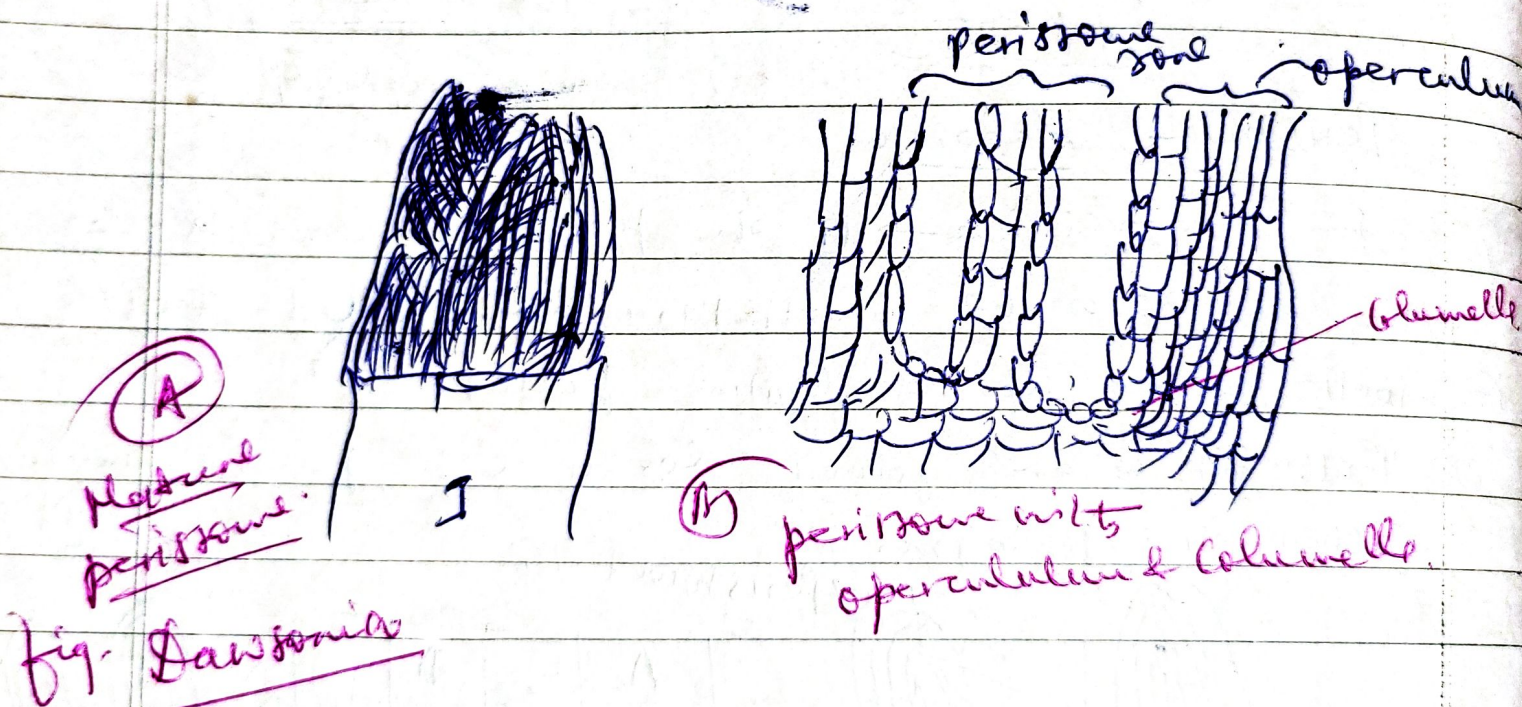 peristome
zone
operculum
Columella
A
Mature
peristome.
B
peristome with
opercululum & Columella.
fig. Dawsonia